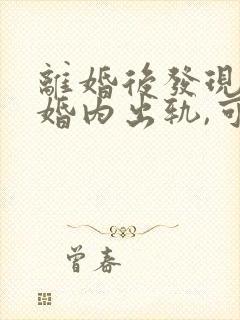 離婚後發現
婚内出轨,可
曾春